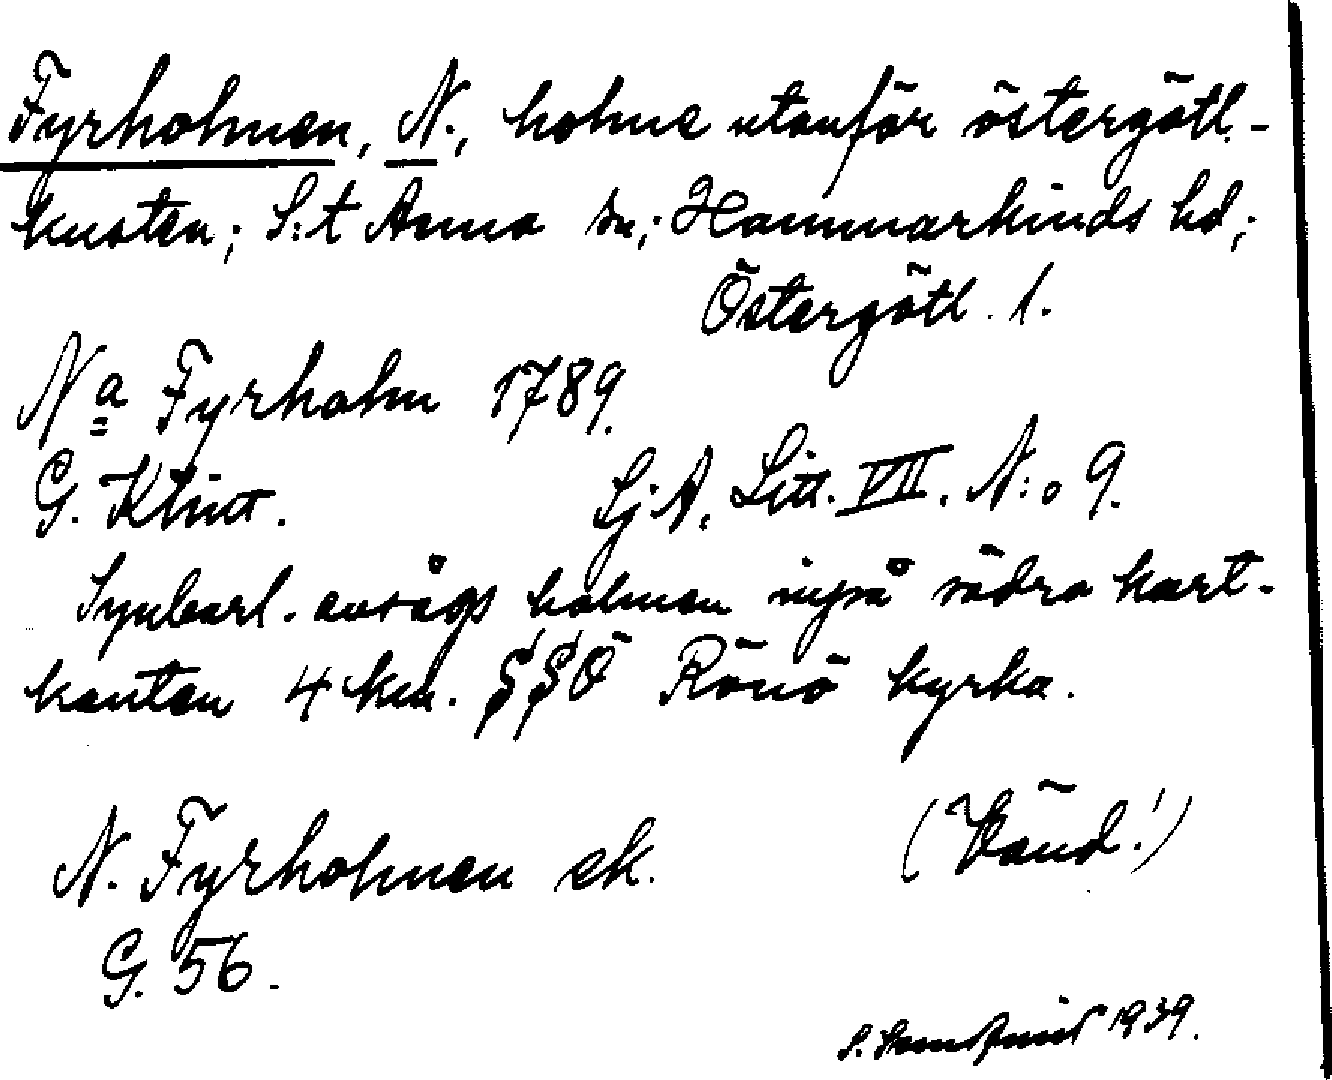 Fyrholmen, N., holme utanför östergötl.-
kusten; S:t Anna sn; Hammarkinds hd;
Östergötl. l.
Na Fyrholm 1789.
G. Klint. SjA, Litt. VII. N:o 9.
Synbarl. avsågs holmen inpå södra kart-
kanten 4 km. SSÖ Rönö kyrka.
(Vänd!)
N. Fyrholmen ek.
G. 56.
S. 1939.